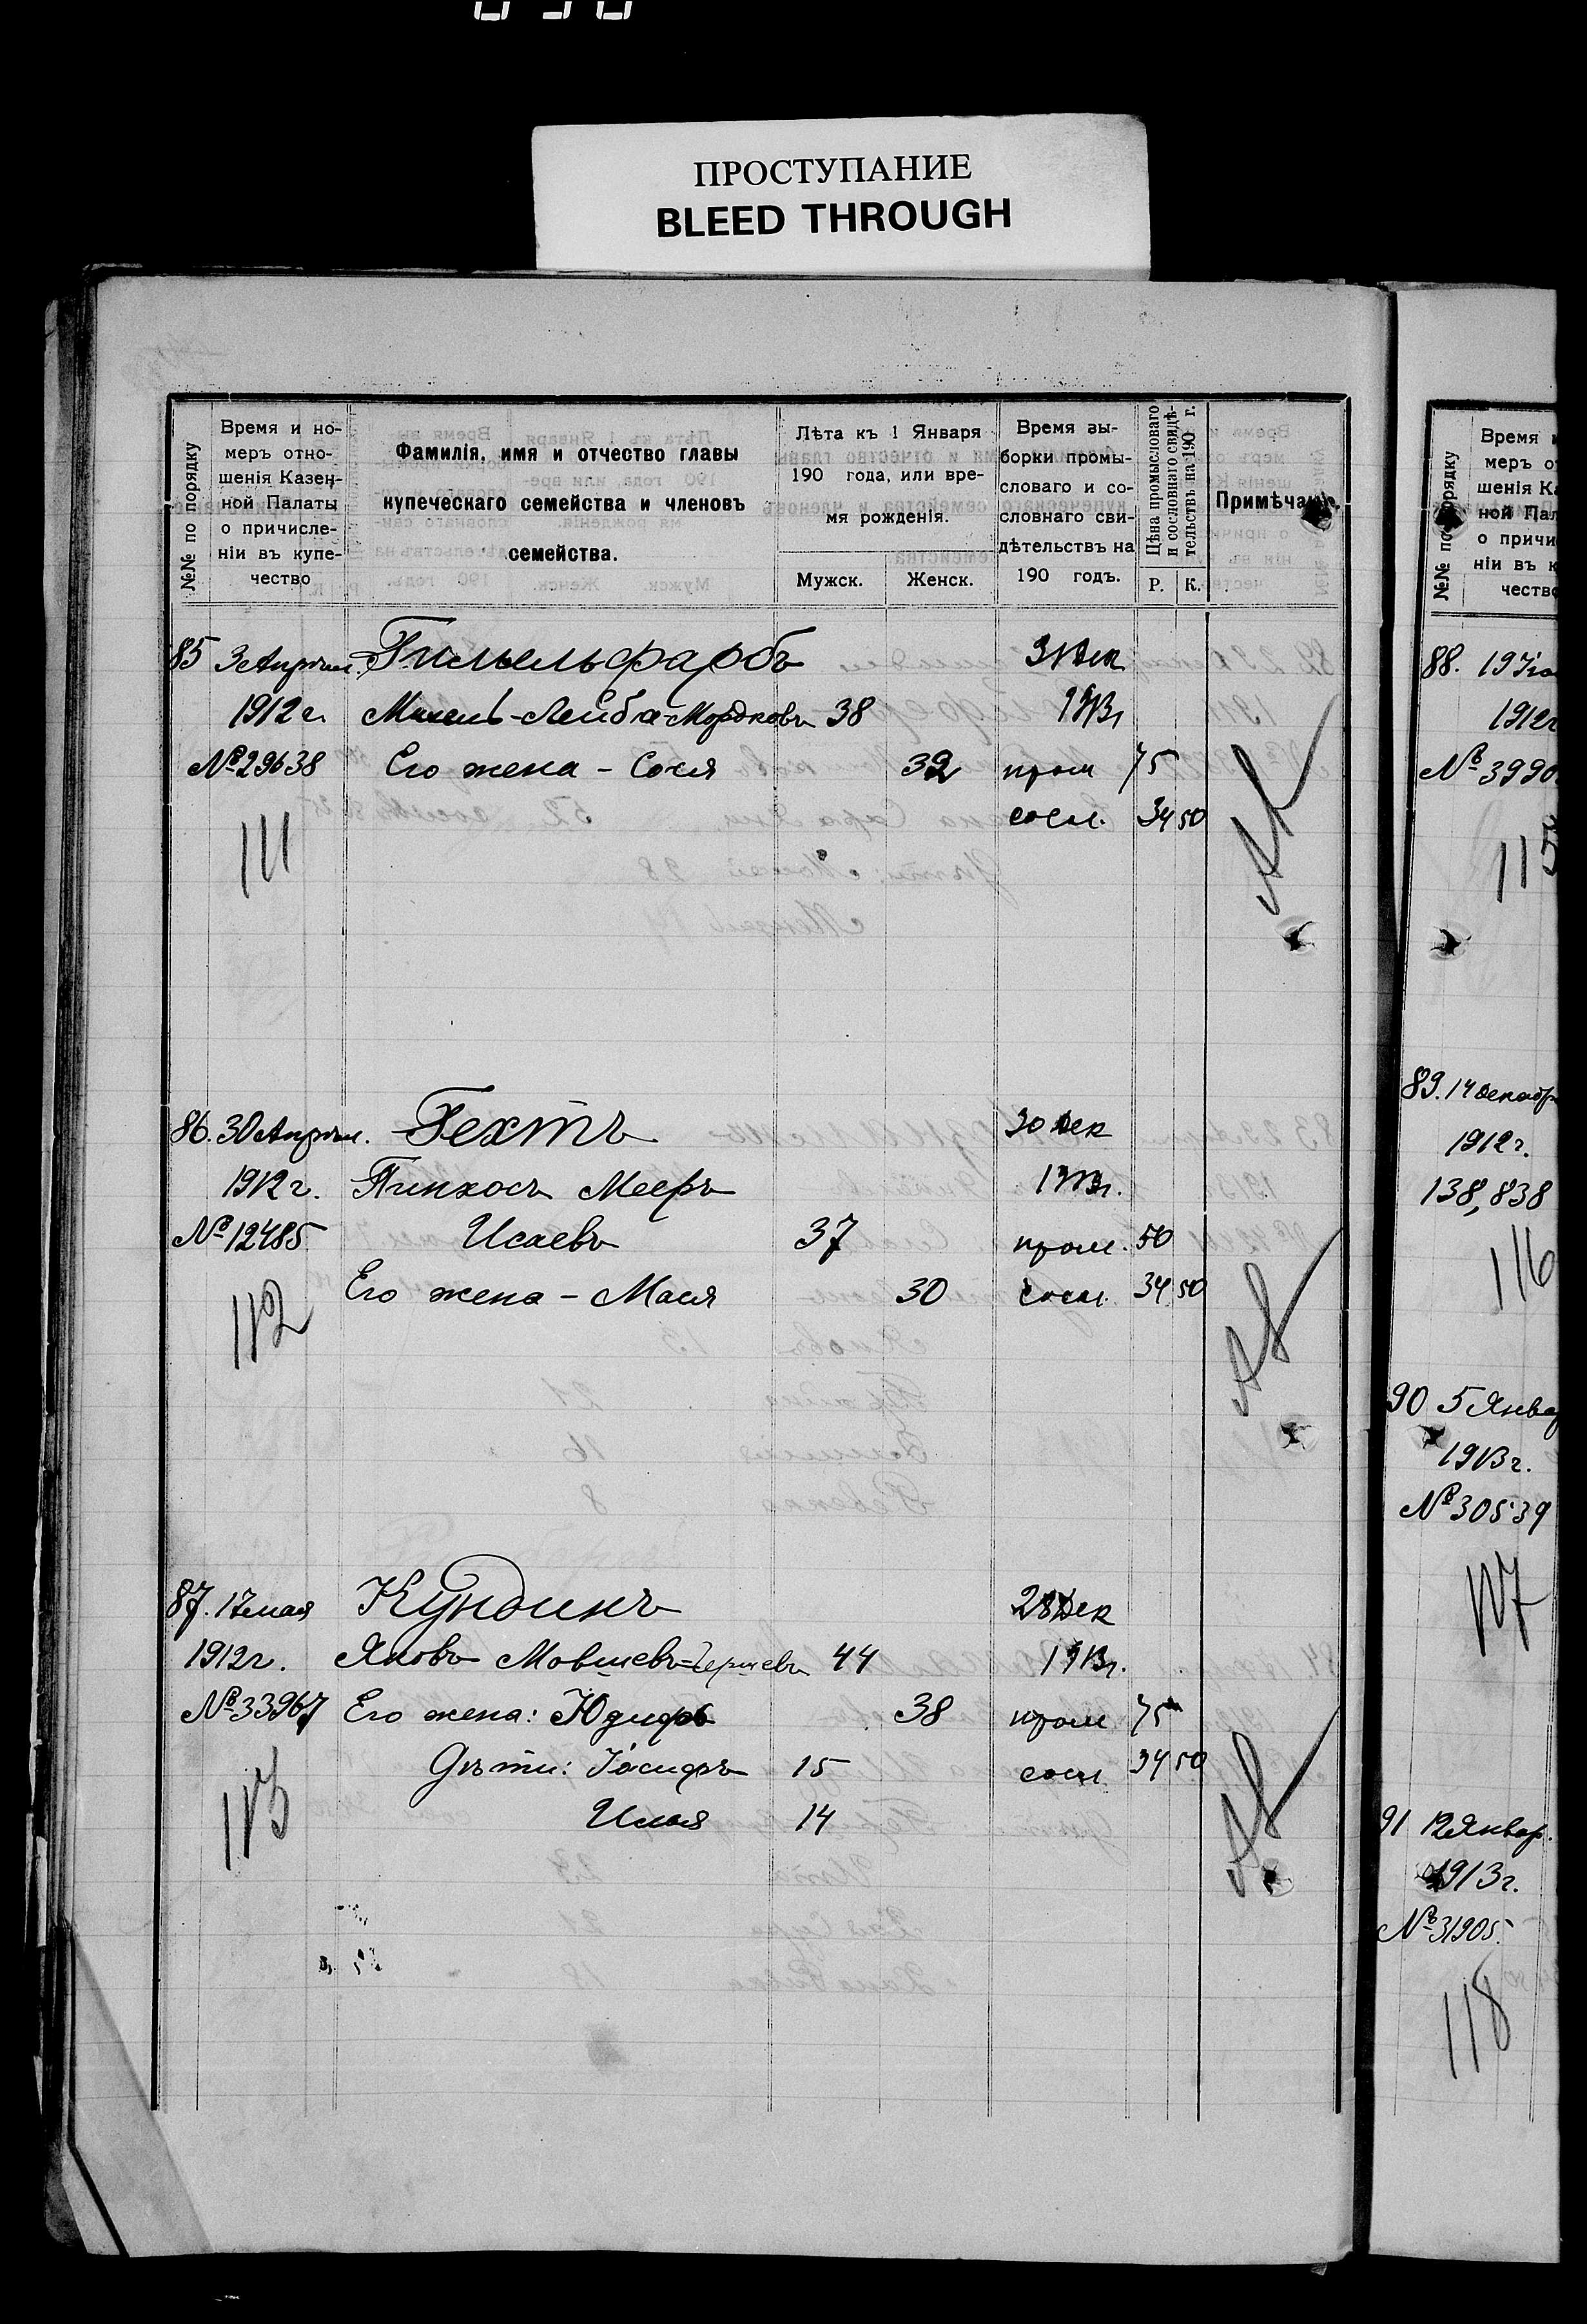 ПРОСТУПАНИЕ
BLEED THROUGH
№№ по порядку
Время и но-
меръ отно-
шенія Казен-
ной Палаты
о причисле-
ніи въ купе-
чество
Фамилія, имя и отчество главы
купеческаго семейства и членовъ
семейства.
Лѣта къ 1 Января
190 года, или вре-
мя рожденія.
Мужск. Женск.
Время вы-
борки промы-
словаго и со-
словнаго сви-
дѣтельствъ на
190 годъ.
Цѣна промысловаго
и сословнаго свидѣ-
тельствъ на 190 г.
Р. К.
Примѣчаніе.
85 3 Апрѣл. Гительфарбъ 31 Дек
1912 г. Михель-Лейба Мордковъ 38
№ 29638 Его жена - Сося 32 пром 75
сосл. 34 50
111
86. 30 Апрѣл. Гехтъ 30 Дек
1912 г. Пинхосъ Мееръ
№ 12485 Исаевъ 37 пром. 50
Его жена - Мася 30 сосл. 34 50
112
87. 17 мая Кундинъ 28 Дек
1912 г. Яковъ Мовшевъ-Гершевъ 44
№ 33967 Его жена: Юдифь 38 пром 75
Дѣти: Іосифъ 15 сосл 34 50
Илья 14
113
№№ по порядку
Время и
меръ от
шенія Ка
ной Пал
о причи
ніи въ к
чество
88. 19
1912 г
№ 3990
115
89. 14 декабр
1912 г.
138,838
116
90 5 Январ
1913 г.
№ 30539
117
91 12 Январ.
1913 г.
№ 31905.
118